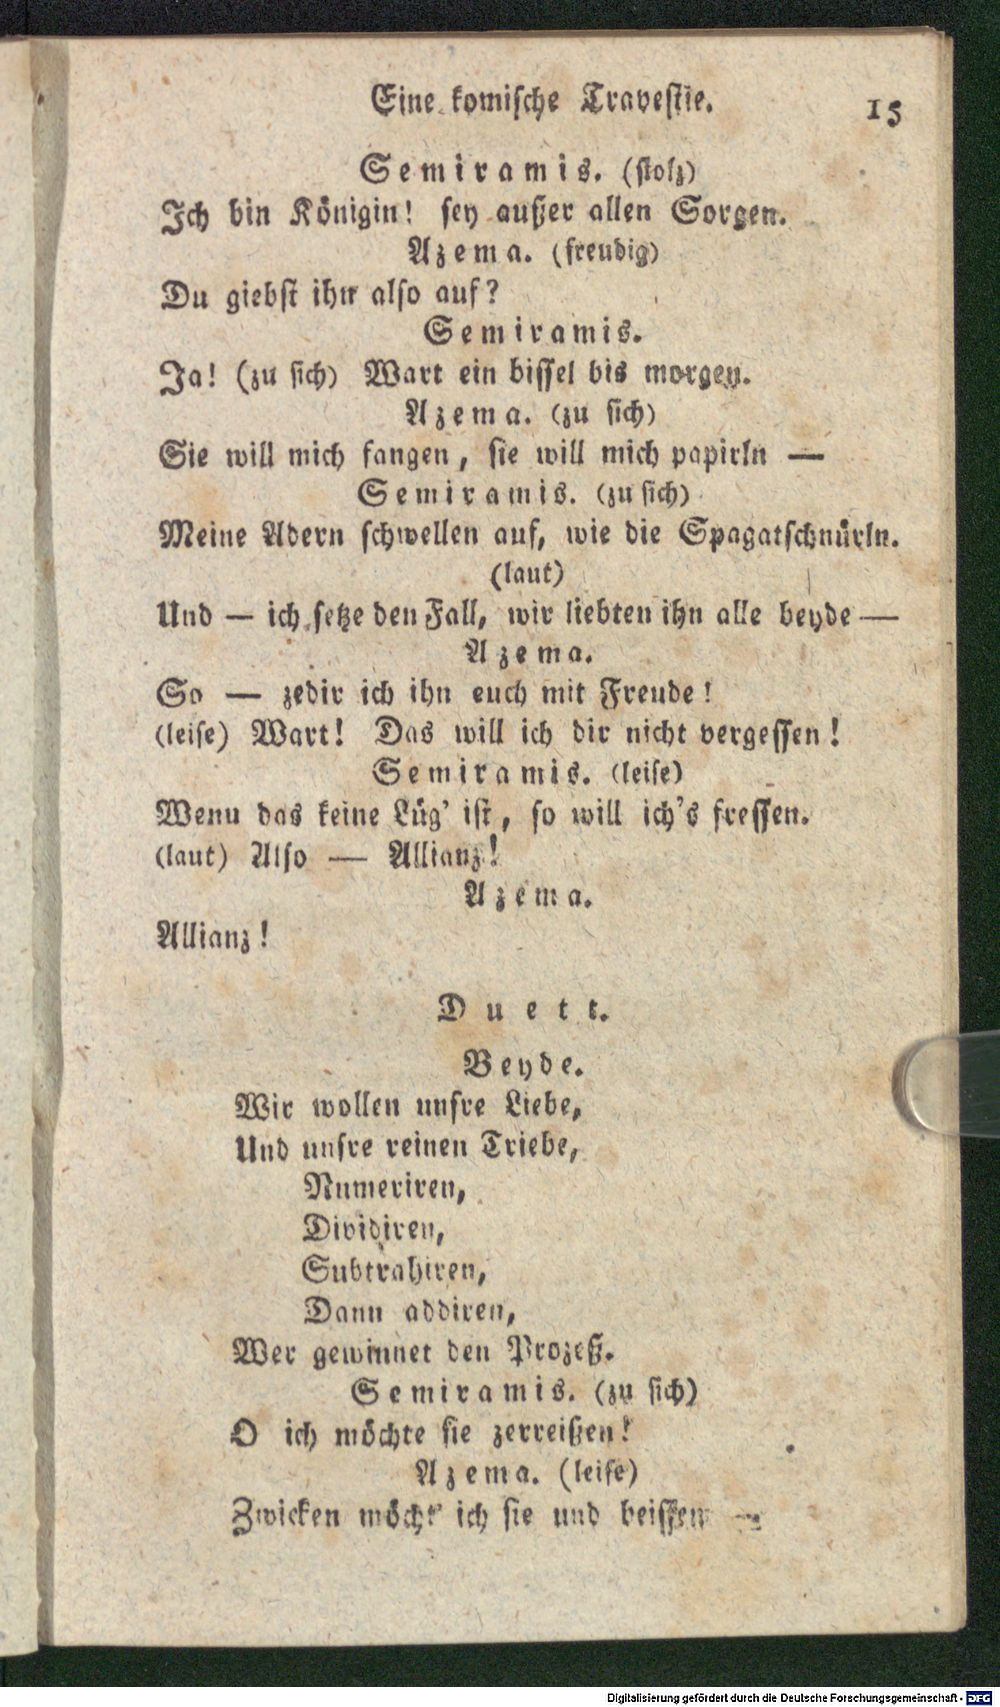 Eine komische Travestie. 15
Semiramis. (stolz)
Ich bin Königin! sey außer allen Sorgen.
Azema. (freudig)
Du giebst ihn also auf?
Semiramis.
Ja! (zu sich) Wart ein bissel bis morgen.
Azema. (zu sich)
Sie will mich fangen, sie will mich papirln —
Semiramis. (zu sich)
Meine Adern schwellen auf, wie die Spagatschnürln.
(laut)
Und — ich setze den Fall, wir liebten ihn alle beyde —
Azema.
So — zedir ich ihn euch mit Freude!
(leise) Wart! Das will ich dir nicht vergessen!
Semiramis. (leise)
Wenn das keine Lüg' ist, so will ich's fressen.
(laut) Also — Allianz!
Azema.
Allianz!
Duett.
Beyde.
Wir wollen unsre Liebe,
Und unsre reinen Triebe,
Numeriren,
Dividiren,
Subtrahiren,
Dann addiren,
Wer gewinnet den Prozeß.
Semiramis. (zu sich)
O ich möchte sie zerreißen!
Azema. (leise)
Zwicken möcht' ich sie und beissen —
Digitalisierung gefördert durch die Deutsche Forschungsgemeinschaft - DFG